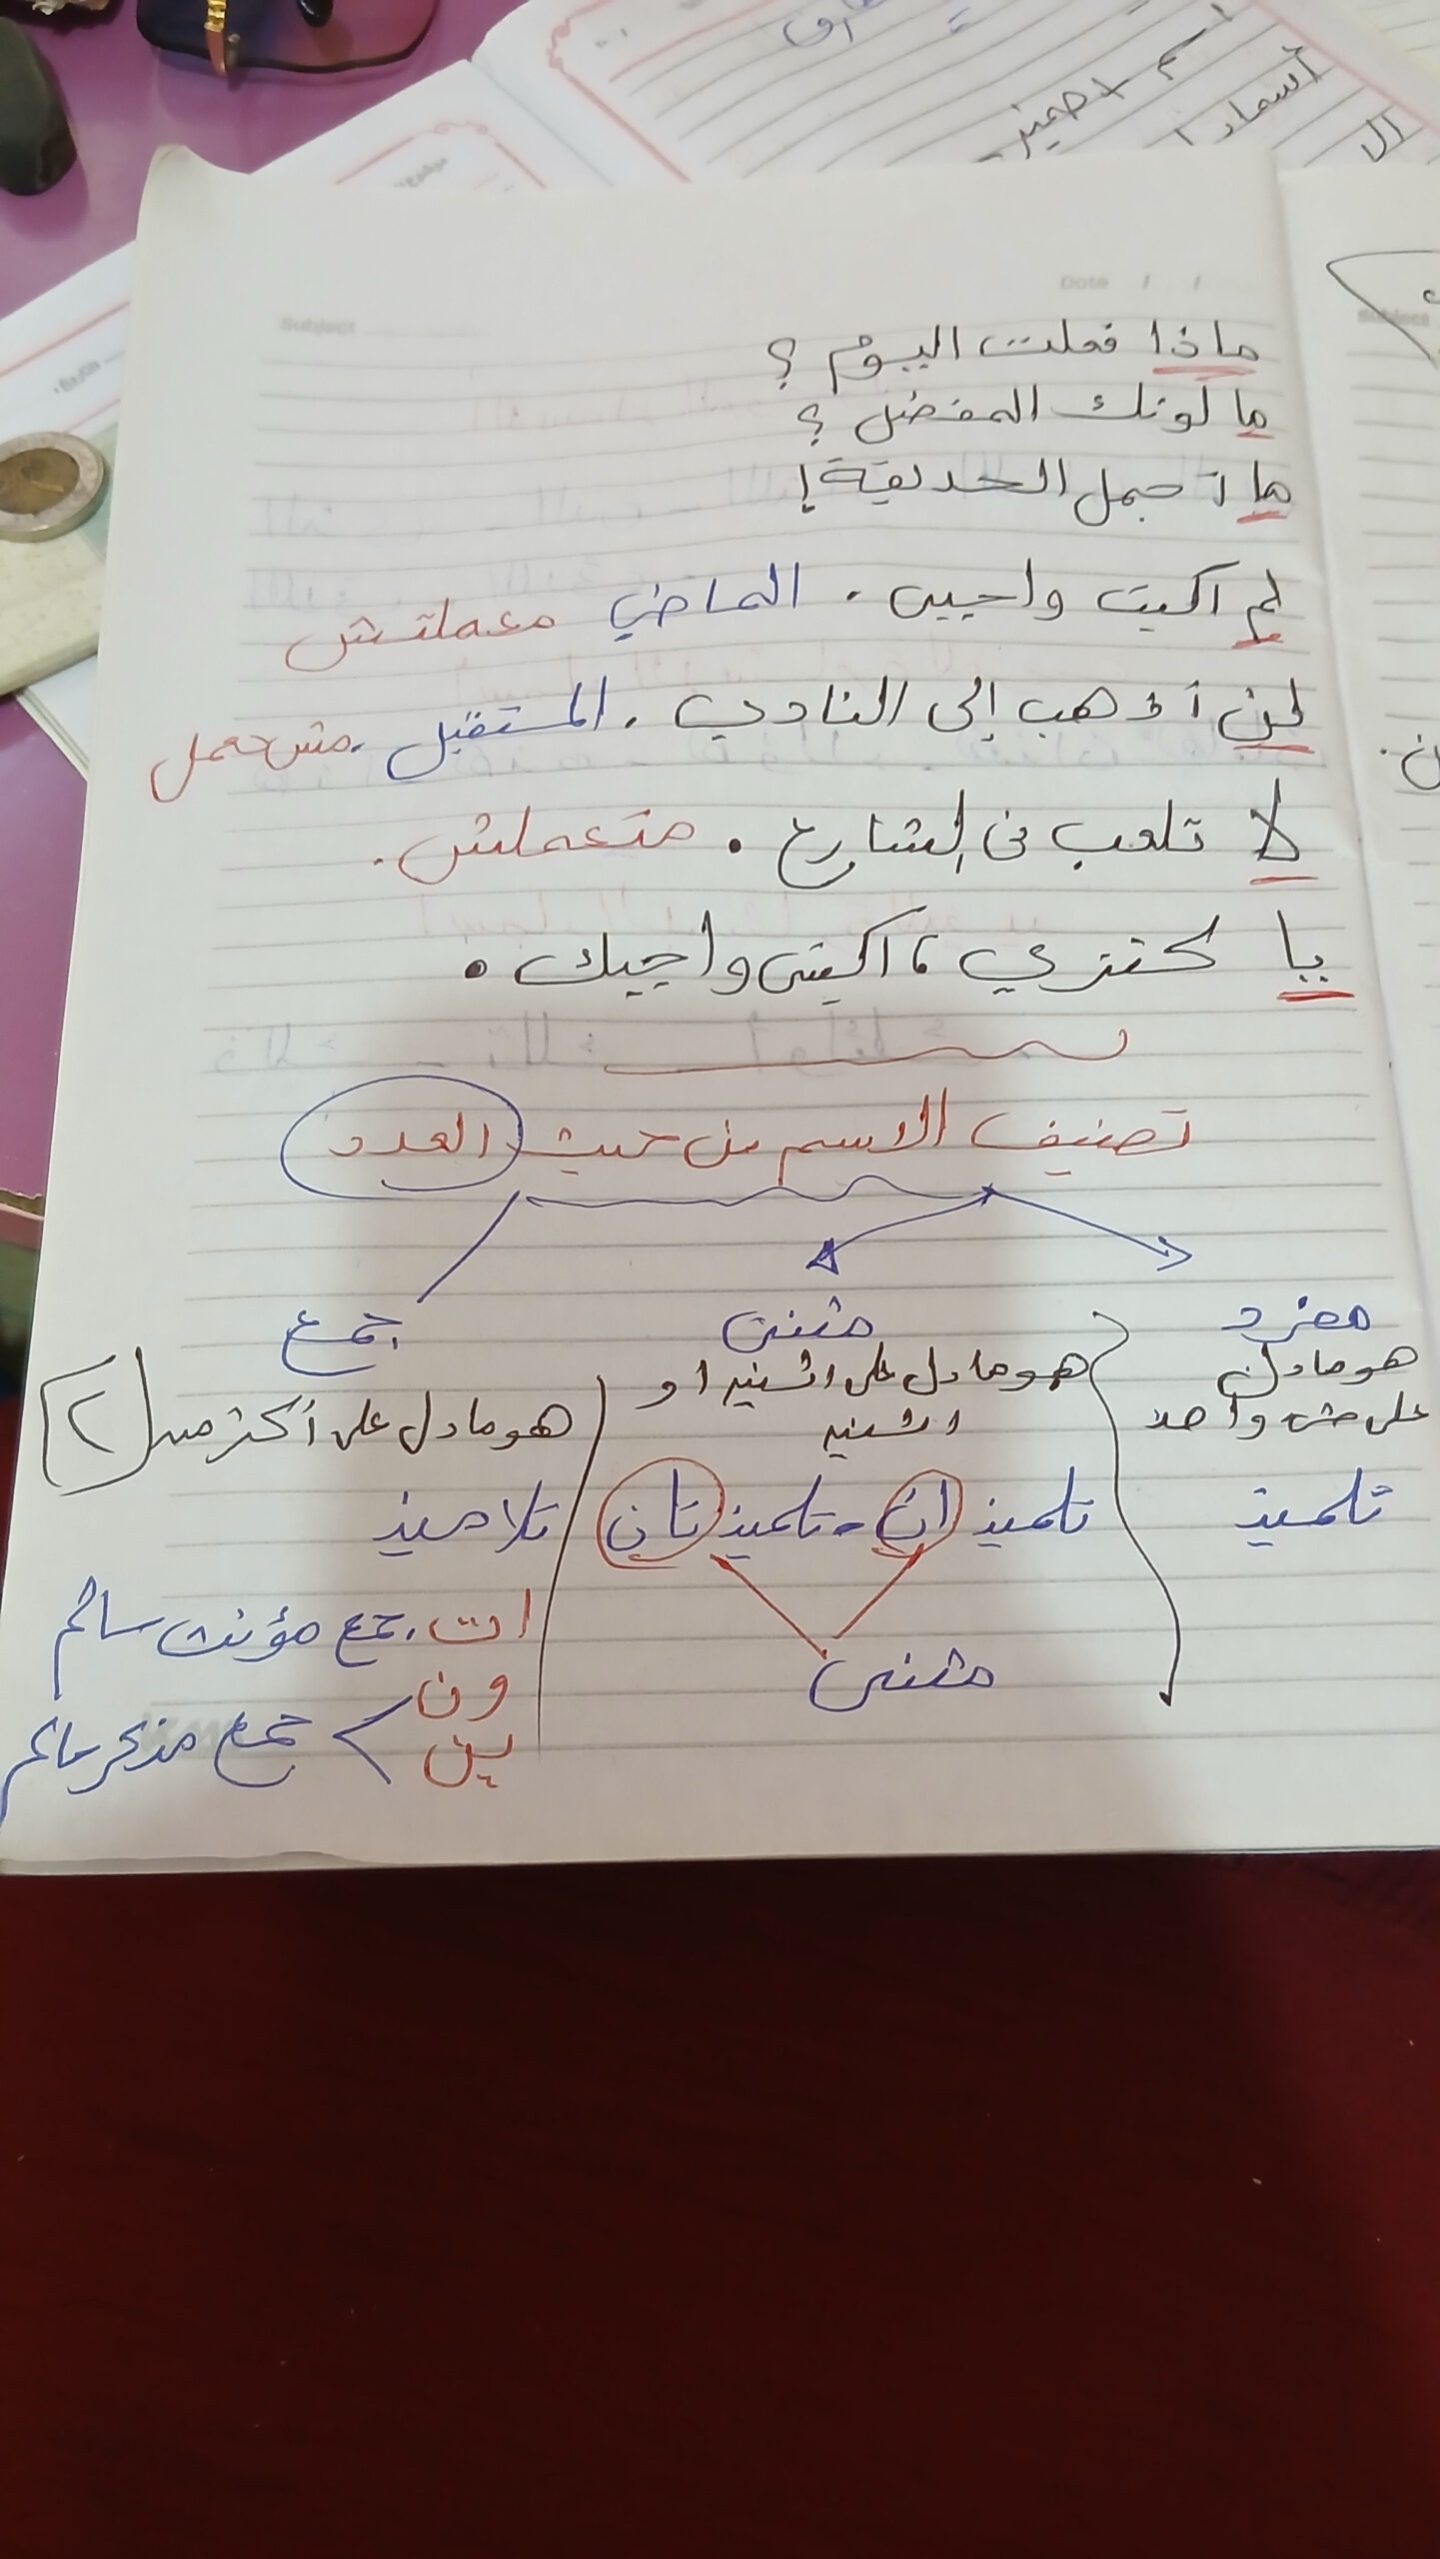 أسماء ا
ال
Date / /
Subject
ماذا فعلت اليوم ؟
ما لونك المفضل ؟
ما أجمل الحديقة !
لم اكتب واجبى . الماضي معملتش
لن أذهب إلى النادي . المستقبل . مش حعمل
لا تلعب فى الشارع . متعملش .
يا كنزي ، اكتبى واجبك .
تصنيف الاسم من حيث العدد
مفرد مثنى جمع
هو ما دل هو ما دل على اثنين او هو ما دل على أكثر من ٢
على شئ واحد اثنين
تلميذ تلميذ ان - تلميذ تان تلاميذ
ات . جمع مؤنث سالم
مثنى
ون
ين > جمع مذكر سالم